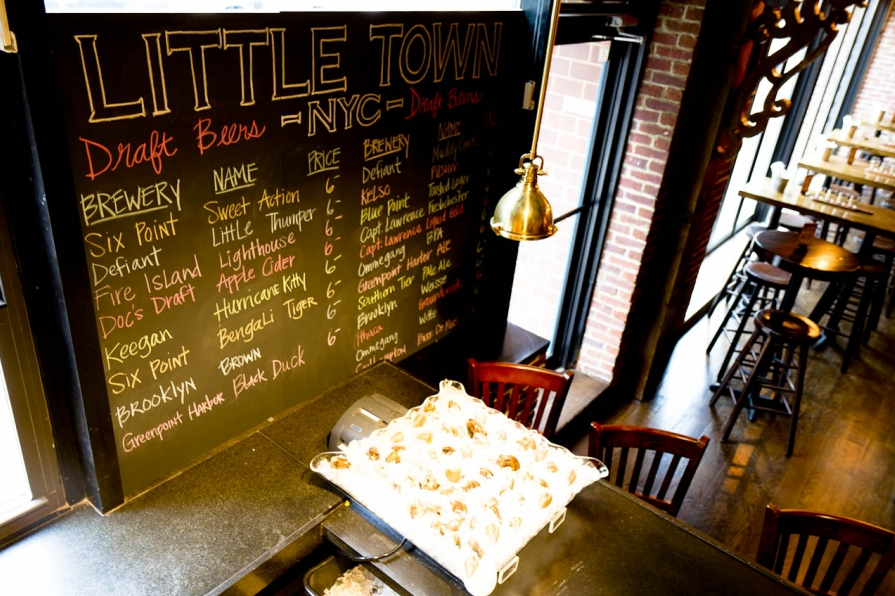 LITTLE TOWN
-NYC-
Draft Beers
BREWERY NAME PRICE
Six Point Sweet Action 6-
Defiant Little Thumper 6-
Fire Island Lighthouse 6-
Doc's Draft Apple Cider 6-
Keegan Hurricane Kitty 6-
Six Point Bengali Tiger 6-
Brooklyn Brown 6-
Greenpoint Harbor Black Duck 6-
Draft Beers
BREWERY NAME
Defiant Muddy Creek
Kelso Pilsner
Blue Point Toasted Lager
Capt. Lawrence Freshchester
Capt. Lawrence Liquid Gold
Ommegang BPA
Greenpoint Harbor ALE
Southern Tier PALE ALE
Brooklyn Weisse
Ithaca
Ommegang Witte